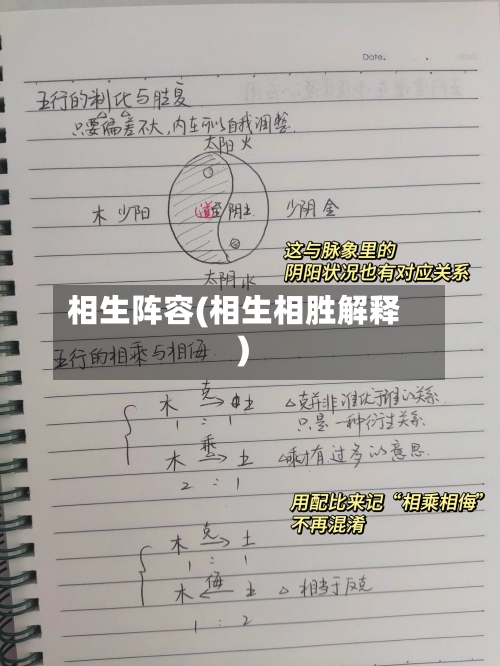 Date.
五行的制化与胜复
只要偏差不大,内在可以自我调整.
太阳火
木少阳
道至阴土
少阴金
太阴水
这与脉象里的
阴阳状况也有对应关系
相生阵容(相生相胜解释
)
五行的相乘与相侮
木 克→ 土
1 : 1
△克并非谁优于谁的关系
只是一种衍生关系.
木 乘→ 土
2 : 1
△乘有过多的意思.
用配比来记“相乘相侮”
不再混淆
木 克→ 土
1 : 1
木 ←侮 土 △ 相当于反克
1 : 2